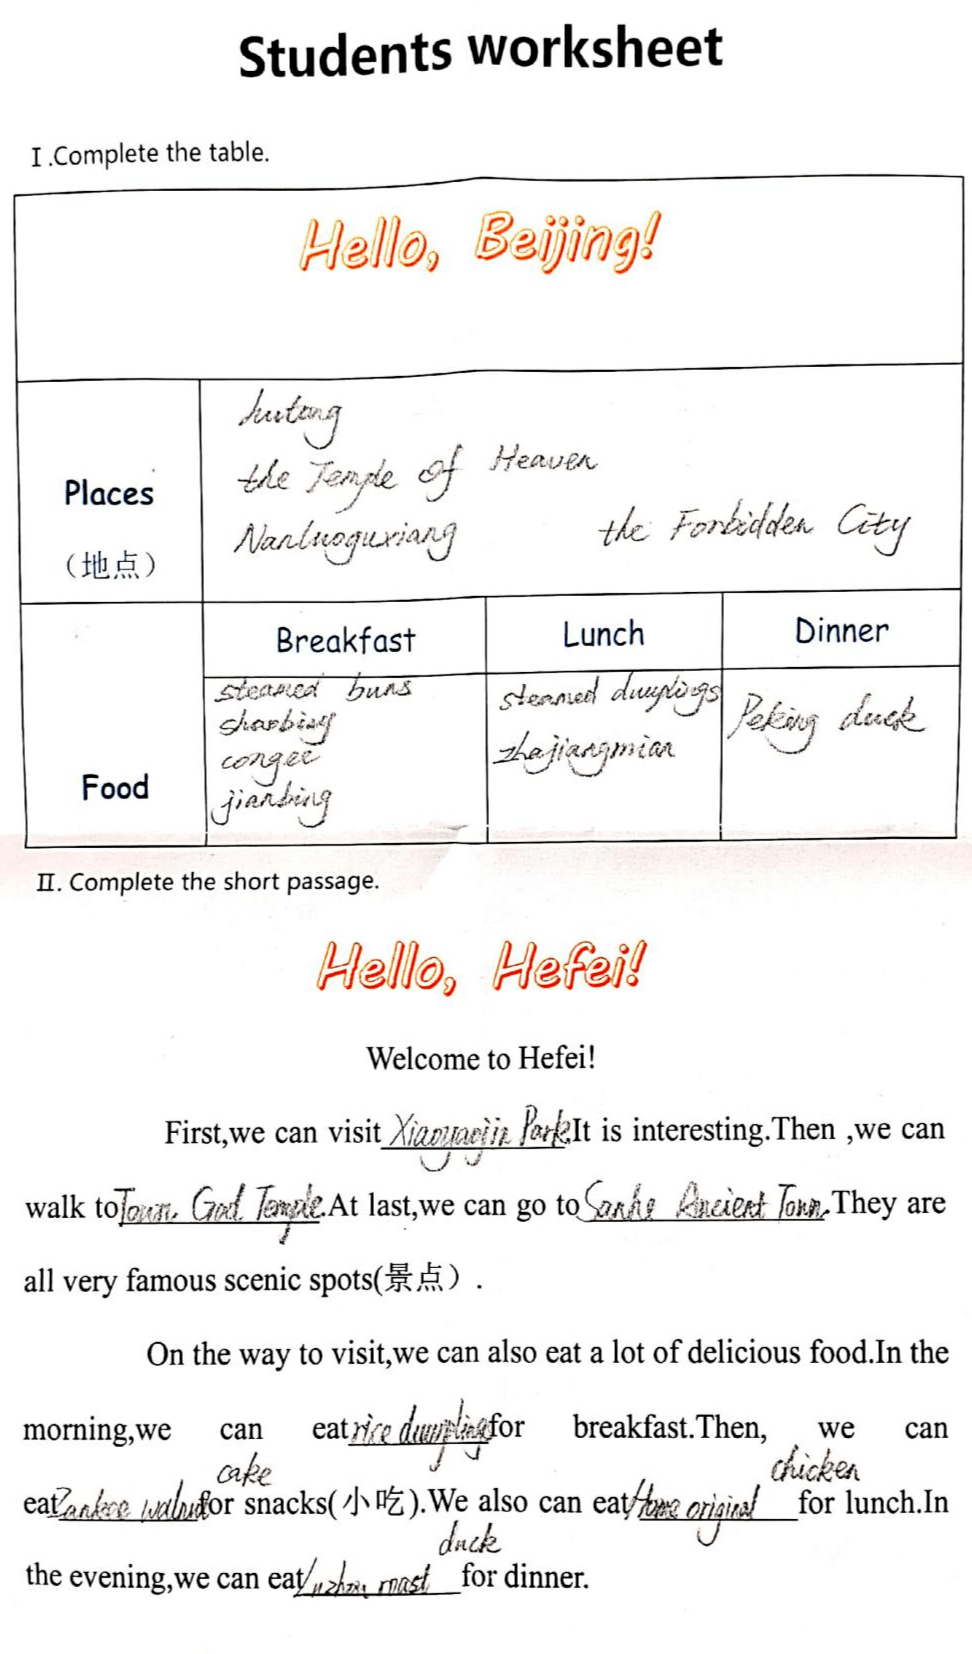 Students worksheet
Ⅰ.Complete the table.
Hello, Beijing!
hutong
the Temple of Heaven
Places
Nanluoguxiang the Forbidden City
(地点)
Breakfast Lunch Dinner
steamed buns steamed dumplings Peking duck
shaobing
congee zhajiangmian
Food
jianbing
Ⅱ. Complete the short passage.
Hello, Hefei!
Welcome to Hefei!
First,we can visit Xiaoyaojin Park.It is interesting.Then ,we can
walk to Town God Temple.At last,we can go to Sanhe Ancient Town.They are
all very famous scenic spots(景点）.
On the way to visit,we can also eat a lot of delicious food.In the
morning,we can eat rice dumpling for breakfast.Then, we can
cake chicken
eat walnut for snacks(小吃).We also can eat Home original for lunch.In
duck
the evening,we can eat Luzhou roast for dinner.